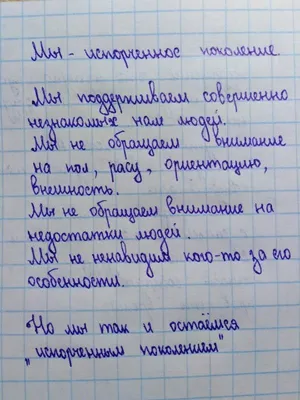 Мы - испорченное поколение
Мы поддерживаем совершенно
незнакомых нам людей.
Мы не обращаем внимание
на пол, расу, ориентацию,
внешность.
Мы не обращаем внимание на
недостатки людей.
Мы не ненавидим кого-то за его
особенности.
Но мы так и остаёмся
„испорченным поколением"